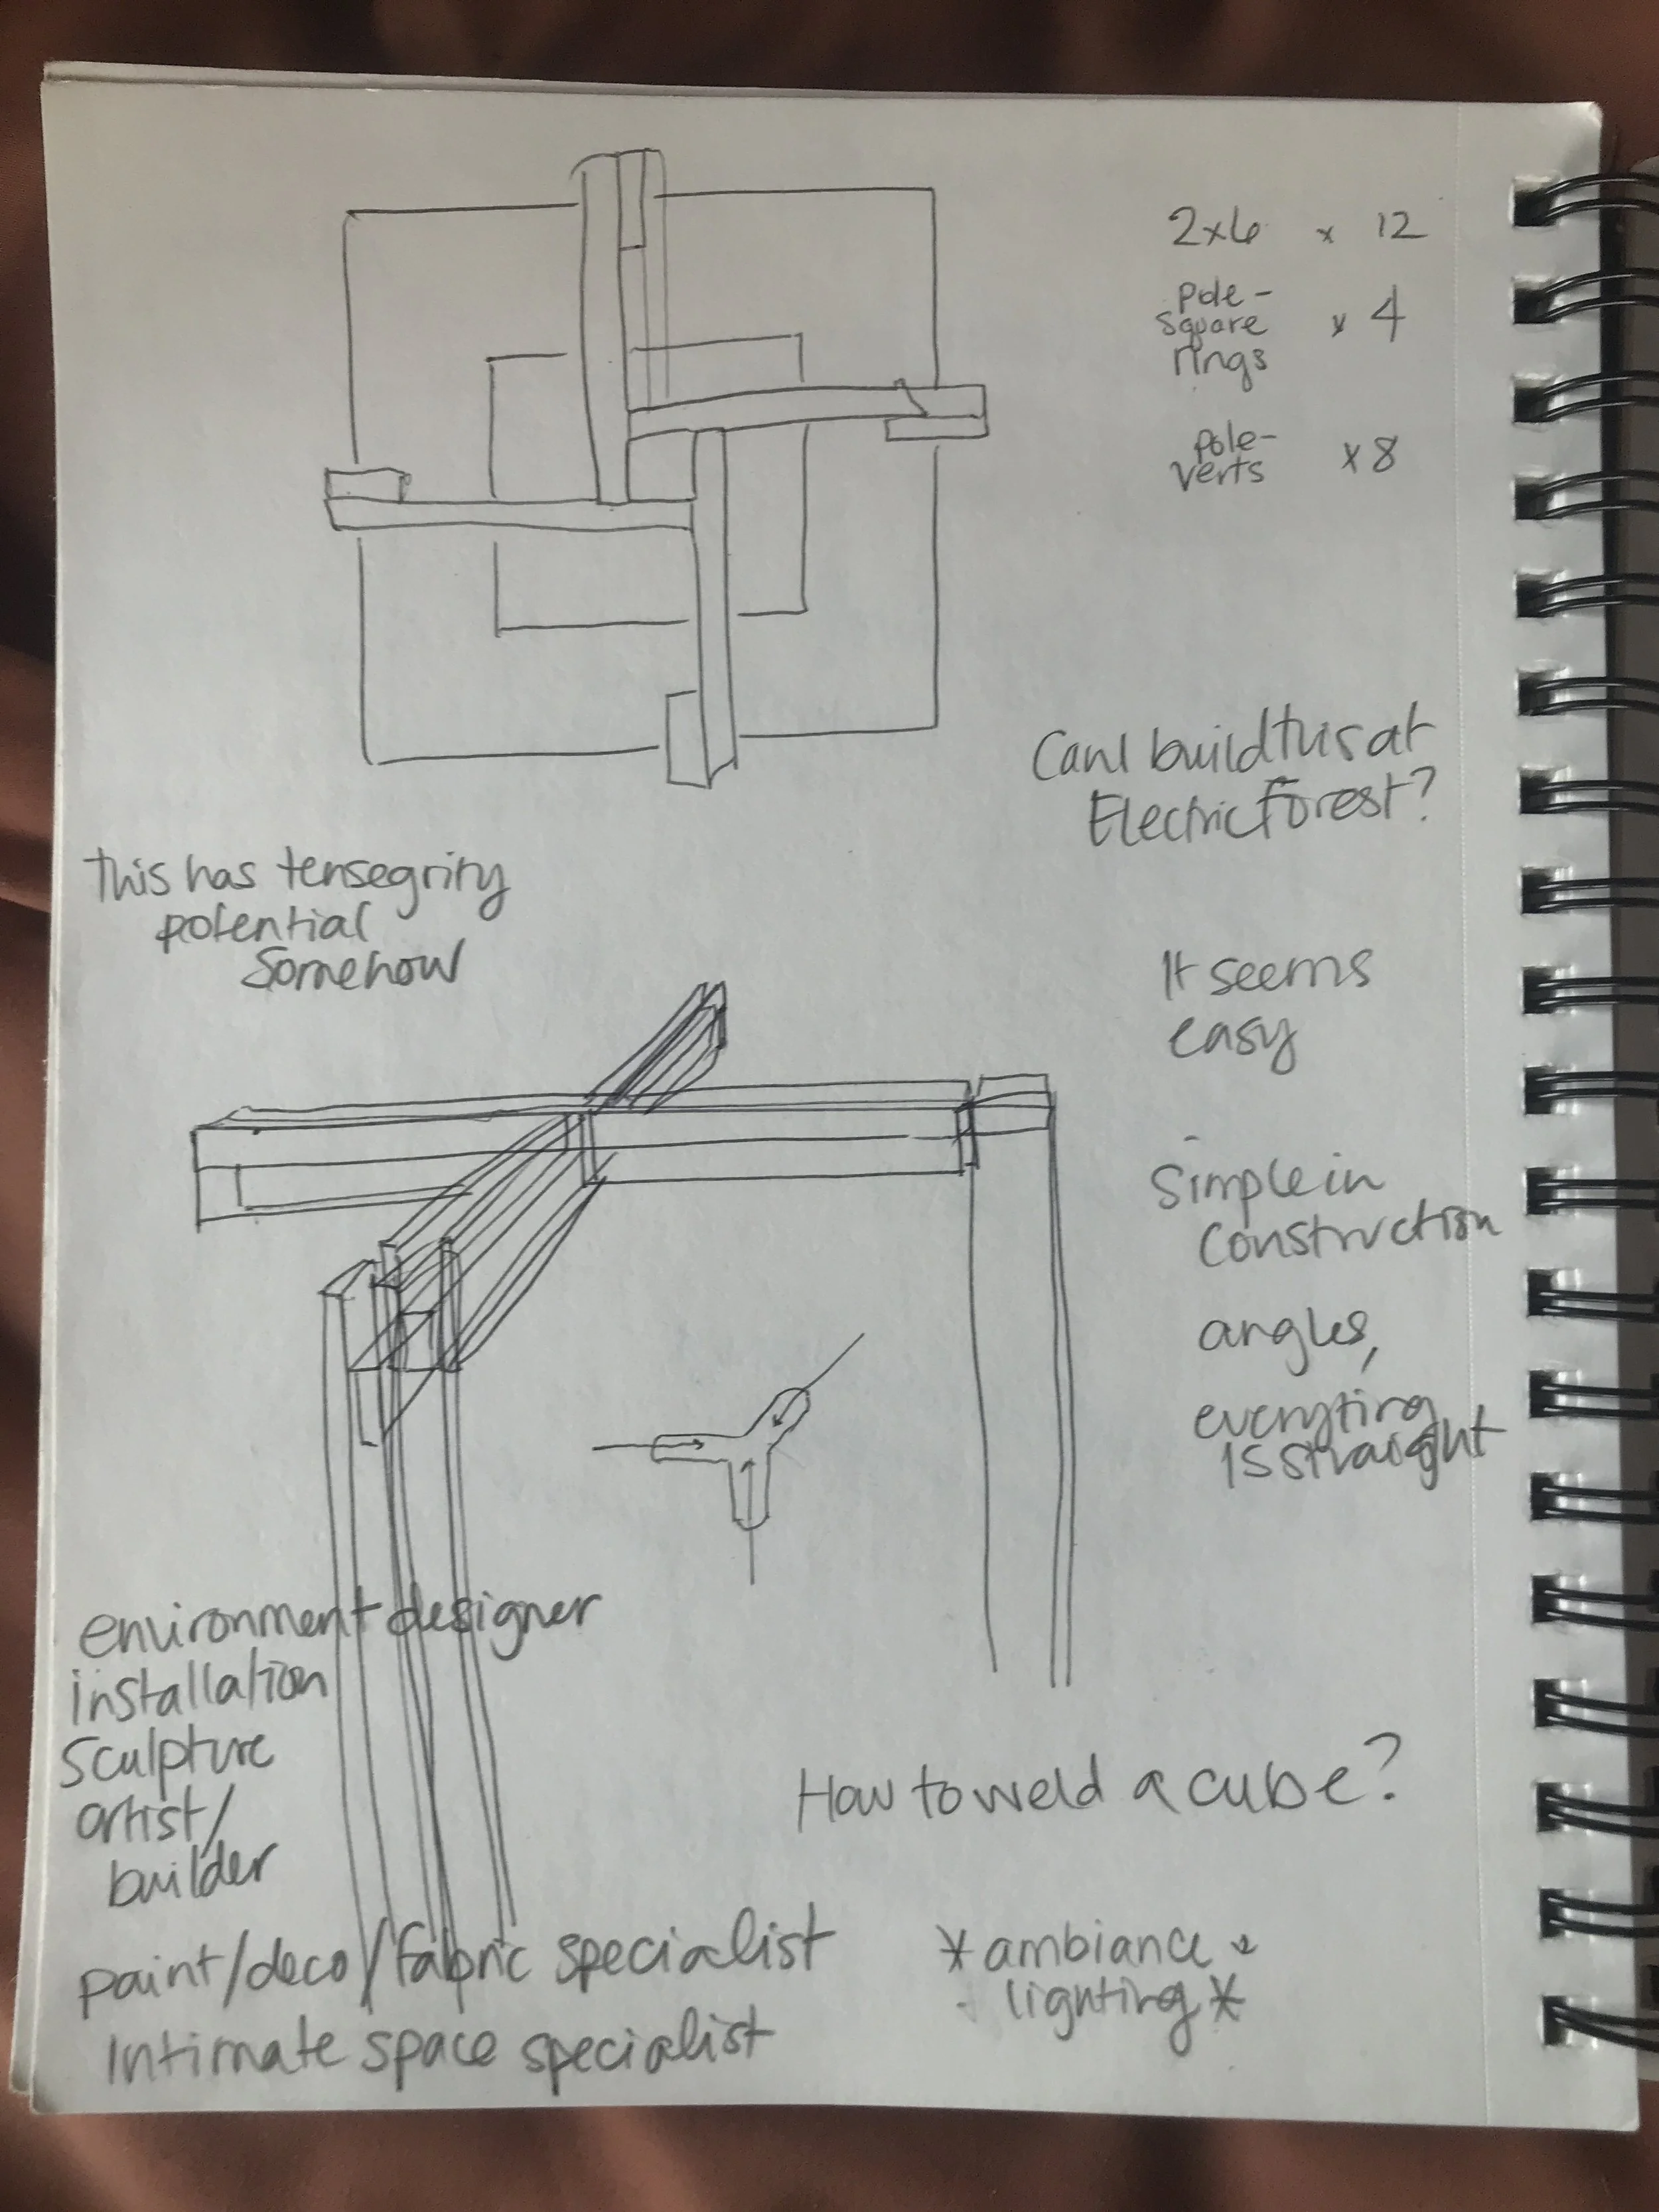 2x6 x 12
pole-
square x 4
rings
pole-
verts x 8
Can I build this at
Electric Forest?
This has tensegrity
potential
Somehow
It seems
easy
Simple in
construction
angles,
everyting
is straight
environment designer
installation
sculpture
artist/
builder
How to weld a cube?
paint/deco/fabric specialist
*ambiance
lighting*
Intimate space specialist